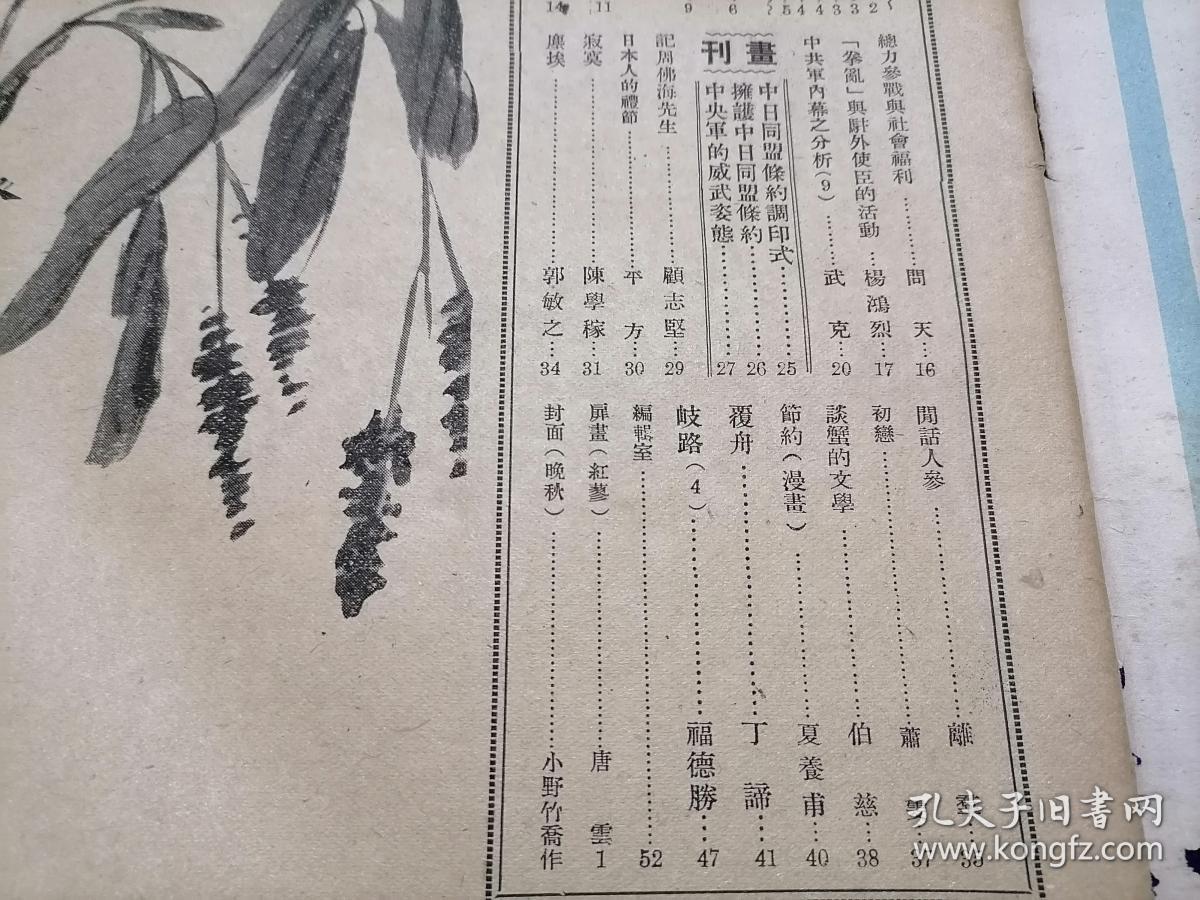 2
3
3
4
4
5
6
9
11
14
總力參戰與社會福利………問天…16
「拳亂」與駐外使臣的活動…楊鴻烈…17
中共軍內幕之分析(9)………武克…20
畫刊
中日同盟條約調印式………25
擁護中日同盟條約………26
中央軍的威武姿態………27
記周佛海先生………顧志堅…29
日本人的禮節………平方…30
寂寞………陳學稼…31
塵埃………郭敏之…34
閒話人參………離
初戀………蕭
談蟹的文學………伯慈…38
節約(漫畫)………夏養甫…40
覆舟………丁諦…41
岐路(4)………福德勝…47
編輯室………52
扉畫(紅蓼)………唐雲 1
封面(晚秋)………小野竹喬作
孔夫子旧书网
www.kongfz.com